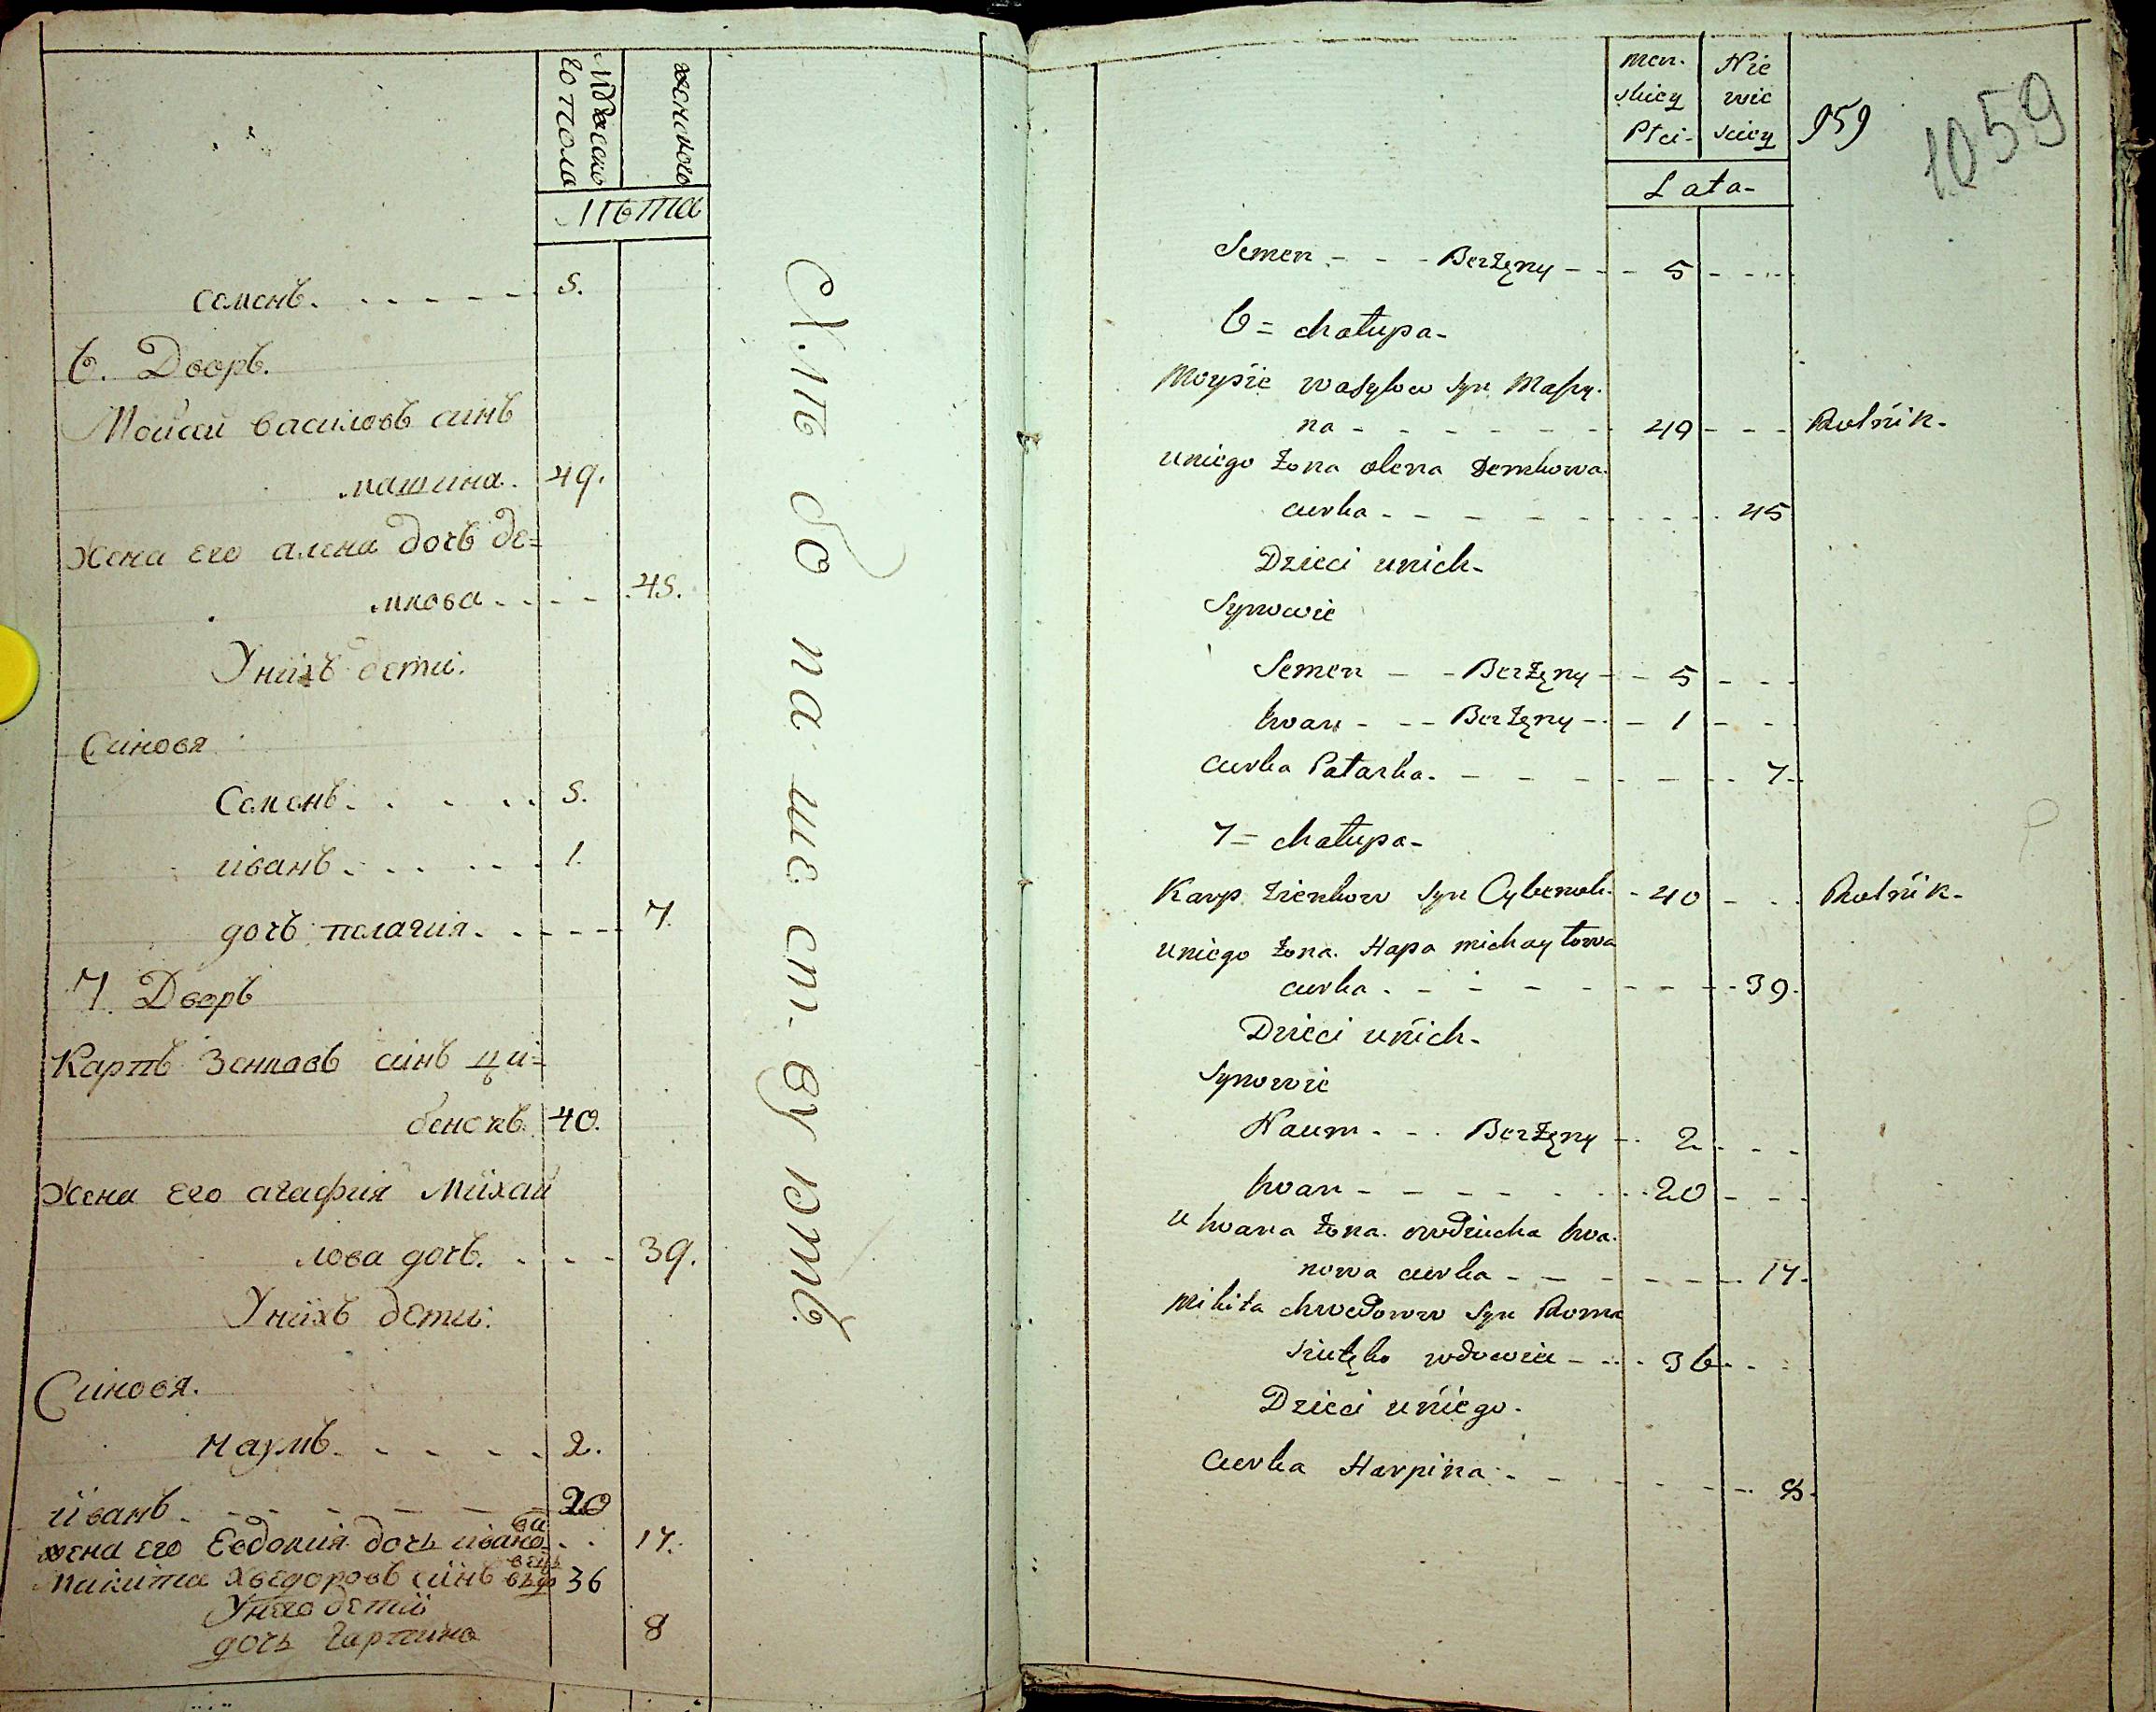 мужеско
го пола
женского
Лѣта
семенъ. 5.
6. Дворъ.
Мойсей василовъ синъ
машина. 49.
Жена его алена дочъ де=
мкова 45.
Унихъ дети.
Синовя
Семенъ 5.
иванъ 1.
дочъ пелагия 7.
7. Дворъ
Карпъ Зенковъ синъ ци=
бенокъ. 40.
Жена его агафия Михай
лова дочъ. 39.
Унихъ дети.
Синовя.
наумъ 2.
иванъ 20
жена его Евдокия дочь ивано
ва 17.
Микита Хведоровъ синъ 36
Унего дети
дочь гарпина 8
Хлѣбо па ше ст. ву ютъ
men.
skiey
Płci-
Nie
wie
sciey
959
1059
Lata-
Semen - - - Berżęny - - - 5 - - -
6 = chałupa-
Moysie wasylow syn Maszy.
na - - - - - - - 49 - - - Rolnik-
uniego żona olena Demkowa
curka - - - - - - - 45
Dzieci unich-
Synowie
Semen - - Berżęny - - 5 - - -
Iwan - - - Berżęny - - - 1 - - -
curka Patarka. - - - - - - 7-
7 = chałupa-
Karp zienkow syn Cybenok. - 40 - - - Rolnik-
uniego żona. Hapa michayłowa
curka. - - - - - - - - 39.
Dzieci unich-
Synowie
Naum. - - . Berżęny - . 2 . - -
Iwan - - - - - - . 20 - - -
u Iwana żona. owdziucha Iwa.
nowa curka - - - - - - - 17-
Mikita chwedorow syn Roma
niutęko wdowiec - - . 36 - . -
Dzieci uniego.
Curka Harpina - - - - - - 8.